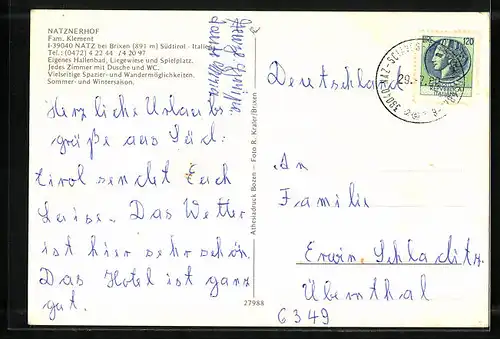 NATZNERHOF
Fam. Klement
I-39040 NATZ bei Brixen (891 m) Südtirol - Italien
Tel.: (0472) 4 22 44 / 4 20 97
Eigenes Hallenbad, Liegewiese und Spielplatz.
Jedes Zimmer mit Dusche und WC.
Vielseitige Spazier- und Wandermöglichkeiten.
Sommer- und Wintersaison.
Herzliche Urlaubs
grüße aus Süd-
tirol sendet Euch
Luise. Das Wetter
ist hier sehr schön.
Das Hotel ist ganz
gut.
Athesiadruck Bozen - Foto R. Kraler/Brixen
27988
Deutschland
120
REPUBBLICA
ITALIANA
An
Familie
Erwin Schladitz
Übernthal
6349